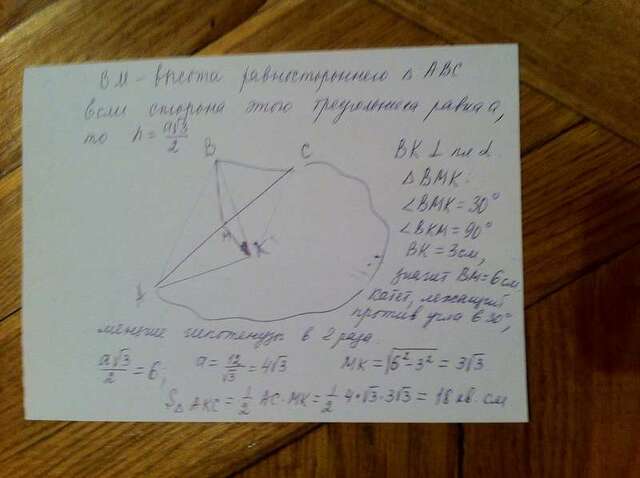 BM – высота равностороннего Δ ABC
если сторона этого треугольника равна a,
то h = a√3/2
B
C
M
K
A
BK ⊥ пл α.
Δ BMK:
∠BMK = 30°
∠BKM = 90°
BK = 3см,
значит BM = 6см
катет, лежащий
против угла в 30°,
меньше гипотенузы в 2 раза.
a√3/2 = 6; a = 12/√3 = 4√3 MK = √6² – 3² = 3√3
S Δ AKC = 1/2 AC · MK = 1/2 4 · √3 · 3√3 = 18 кв. см